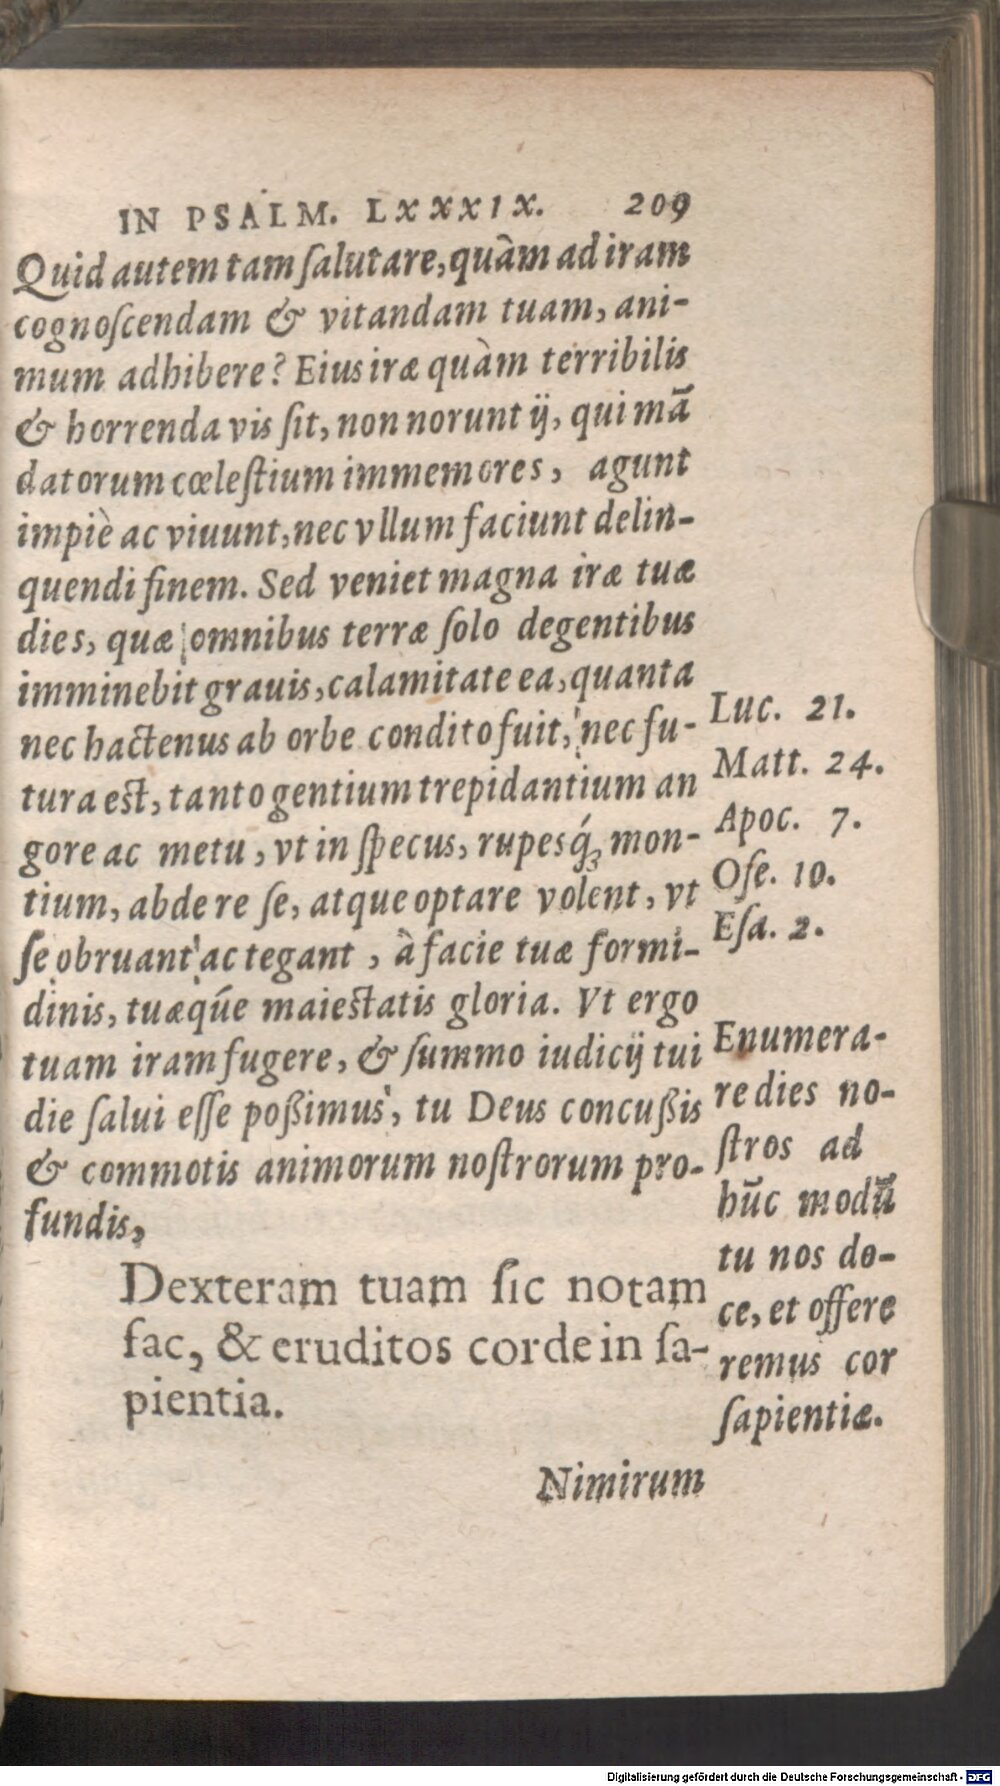 IN PSALM. LXXXIX. 209
Quid autem tam ſalutare, quàm ad iram
cognoſcendam & vitandam tuam, ani-
mum adhibere? Eius iræ quàm terribilis
& horrenda vis ſit, non norunt ij, qui mā
datorum cœleſtium immemores, agunt
impiè ac viuunt, nec vllum faciunt delin-
quendi finem. Sed veniet magna iræ tuæ
dies, quæ omnibus terræ ſolo degentibus
imminebit grauis, calamitate ea, quanta
nec hactenus ab orbe condito fuit, nec fu-
tura eſt, tanto gentium trepidantium an
gore ac metu, vt in ſpecus, rupesq́; mon-
tium, abdere ſe, atque optare volent, vt
ſe obruant ac tegant, à facie tuæ formi-
dinis, tuæq́ue maieſtatis gloria. Vt ergo
tuam iram fugere, & ſummo iudicij tui
die ſalui eſſe poßimus, tu Deus concußis
& commotis animorum noſtrorum pro-
fundis,
Dexteram tuam ſic notam
fac, & eruditos corde in ſa-
pientia.
Nimirum
Luc. 21.
Matt. 24.
Apoc. 7.
Oſe. 10.
Eſa. 2.
Enumera-
re dies no-
ſtros ad
hūc modū
tu nos do-
ce, et offere
remus cor
ſapientiæ.
Digitalisierung gefördert durch die Deutsche Forschungsgemeinschaft - DFG